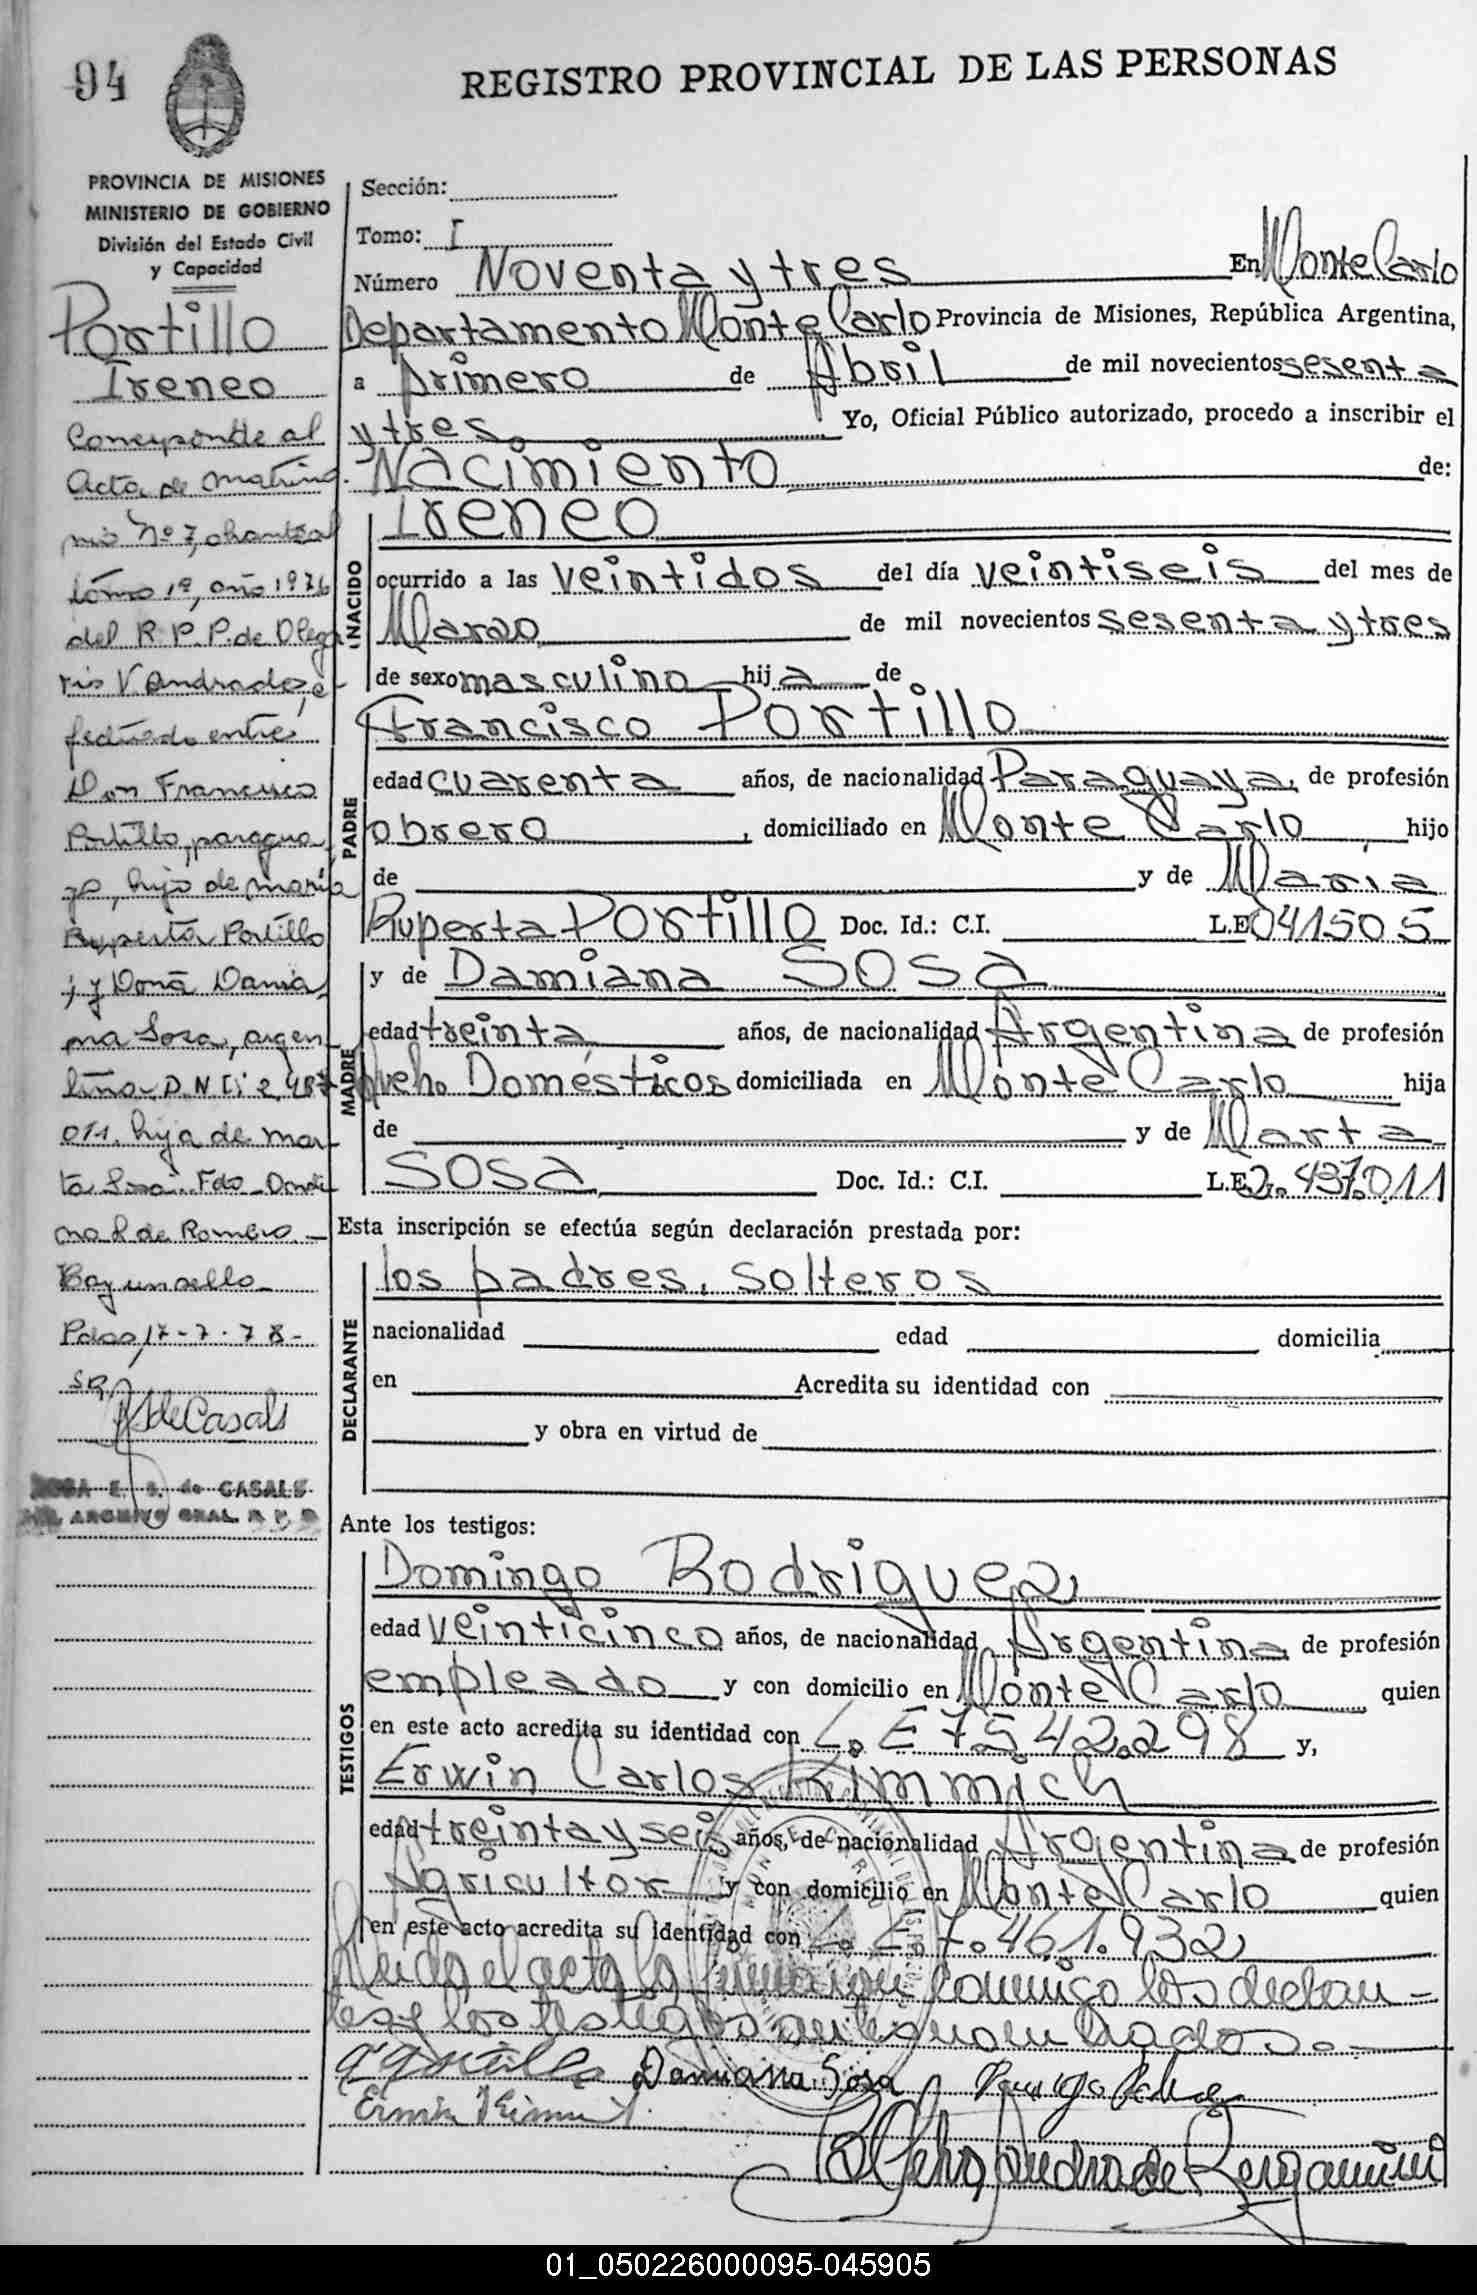 94
REGISTRO PROVINCIAL DE LAS PERSONAS
PROVINCIA DE MISIONES
MINISTERIO DE GOBIERNO
División del Estado Civil
y Capacidad
Portillo
Ireneo
Corresponde al
acta de matrimo
nio Nº 7, obrante al
tomo 1º, año 1976
del R. P. P. de Olega
rio V Andrade, e-
fectuado entre
Don Francisco
Portillo, paragua
yo, hijo de maría
Ruperta Portillo
; y Doña Damia
na Sosa, argen
tina D.N.I: 2,487
011. hija de Mar
ta Sosa. Fdo
de Romero
Pdas, 17-7-78-
SR
de Casals
E. S. de CASALS
ARCHIVO GRAL. R P P
Sección:
Tomo: I
Número Noventa y tres En Monte Carlo
Departamento Monte Carlo Provincia de Misiones, República Argentina,
a primero de Abril de mil novecientos sesenta
y tres. Yo, Oficial Público autorizado, procedo a inscribir el
Nacimiento de:
NACIDO
Ireneo
ocurrido a las veintidos del día veintiseis del mes de
Marzo de mil novecientos sesenta y tres
de sexo masculino hija de
PADRE
Francisco Portillo
edad cuarenta años, de nacionalidad Paraguaya, de profesión
obrero, domiciliado en Monte Carlo hijo
de y de María
Ruperta Portillo Doc. Id.: C.I. L.E 041505
MADRE
y de Damiana Sosa
edad treinta años, de nacionalidad Argentina de profesión
Queha Domésticos domiciliada en Monte Carlo hija
de y de Marta
Sosa Doc. Id.: C.I. L.E. 2.437.011
Esta inscripción se efectúa según declaración prestada por:
DECLARANTE
los padres, solteros
nacionalidad edad domicilia
en Acredita su identidad con
y obra en virtud de
Ante los testigos:
TESTIGOS
Domingo Rodriguez
edad veinticinco años, de nacionalidad Argentina de profesión
empleado y con domicilio en Monte Carlo quien
en este acto acredita su identidad con L. E 7.542.298 y,
Erwin Carlos Kimmich
edad treinta y seis años, de nacionalidad Argentina de profesión
Agricultor y con domicilio en Monte Carlo quien
en este acto acredita su identidad con L. E. 7.461.932
Leida el acta la firman conmigo los declaran-
tes y los testigos antes nombrados.-
Damiana Sosa
Erwin Kimmich
de Bergamini
01_050226000095-045905